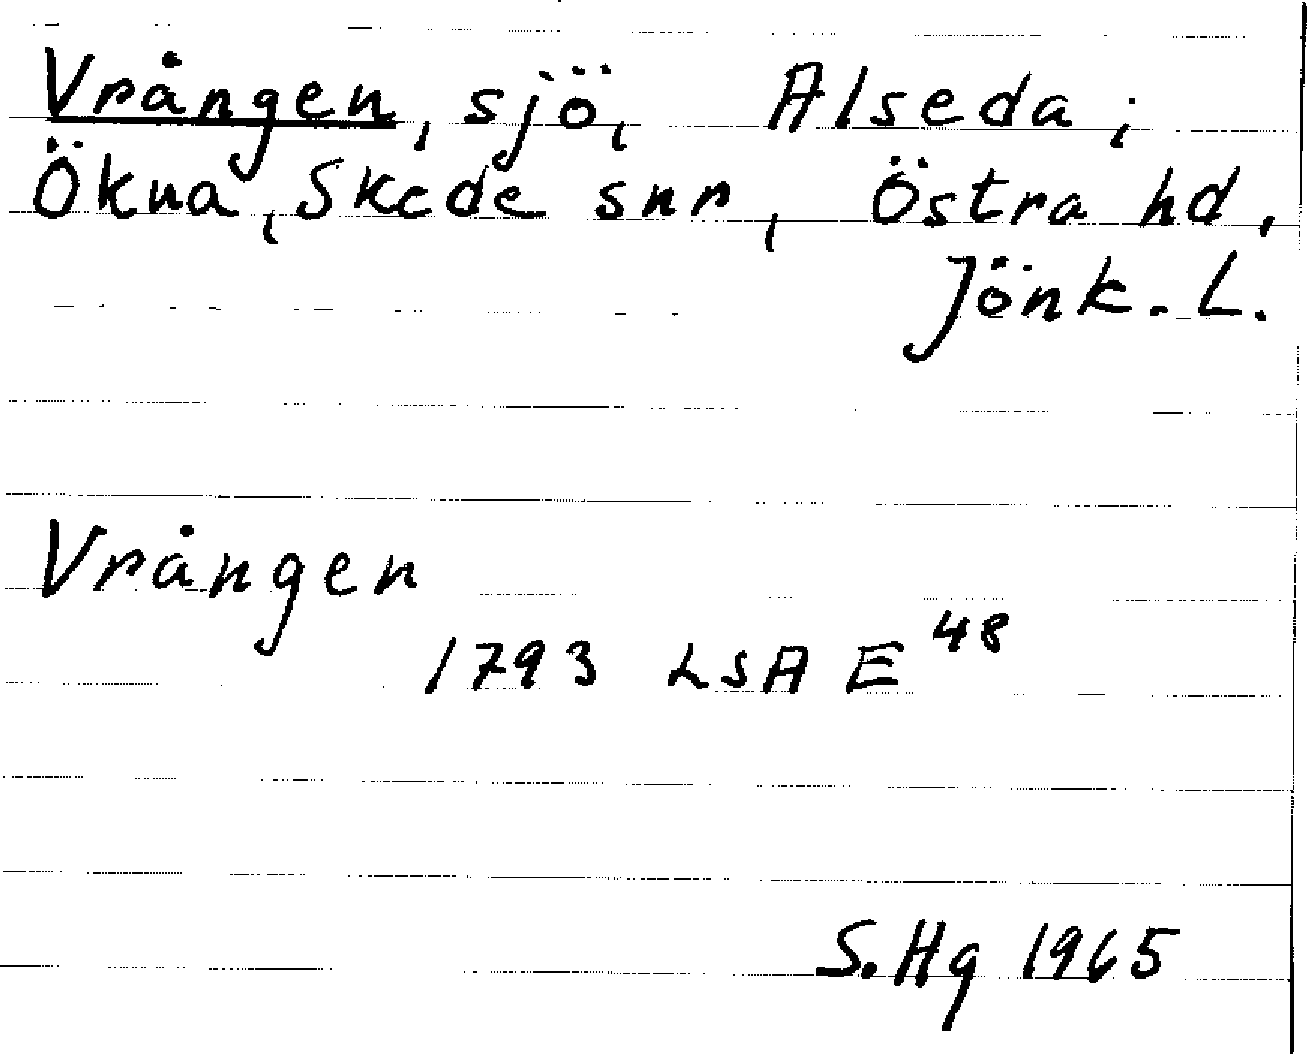 Vrången, sjö, Alseda;
Ökna, Skede snr, Östra hd,
Jönk. L.
Vrången
1793 LSA E 48
S.Hg 1965